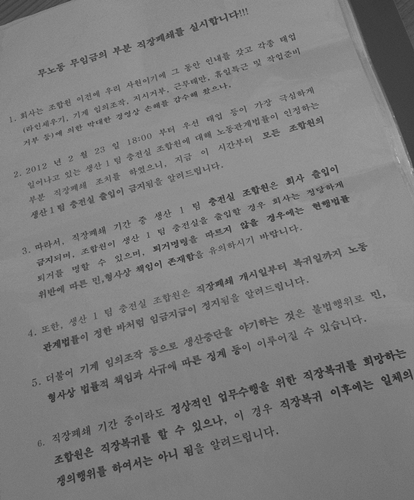 무노동 무임금의 부분 직장폐쇄를 실시합니다!!!
1. 회사는 조합원 이전에 우리 사원이기에 그 동안 인내를 갖고 각종 태업
(라인세우기, 기계 임의조작, 지시거부, 근무태만, 휴일특근 및 작업준비
거부 등)에 의한 막대한 경영상 손해를 감수해 왔으나,
2. 2012 년 2 월 23 일 18:00 부터 우선 태업 등이 가장 극심하게
일어나고 있는 생산 1 팀 충전실 조합원에 대해 노동관계법률이 인정하는
부분 직장폐쇄 조치를 하였으니, 지금 이 시간부터 모든 조합원의
생산 1 팀 충전실 출입이 금지됨을 알려드립니다.
3. 따라서, 직장폐쇄 기간 중 생산 1 팀 충전실 조합원은 회사 출입이
금지되며, 조합원이 생산 1 팀 충전실을 출입할 경우 회사는 정당하게
퇴거를 명할 수 있으며, 퇴거명령을 따르지 않을 경우에는 현행법률
위반에 따른 민,형사상 책임이 존재함을 유의하시기 바랍니다.
4. 또한, 생산 1 팀 충전실 조합원은 직장폐쇄 개시일부터 복귀일까지 노동
관계법률이 정한 바처럼 임금지급이 정지됨을 알려드립니다.
5. 더불어 기계 임의조작 등으로 생산중단을 야기하는 것은 불법행위로 민,
형사상 법률적 책임과 사규에 따른 징계 등이 이루어질 수 있습니다.
6. 직장폐쇄 기간 중이라도 정상적인 업무수행을 위한 직장복귀를 희망하는
조합원은 직장복귀를 할 수 있으나, 이 경우 직장복귀 이후에는 일체의
쟁의행위를 하여서는 아니 됨을 알려드립니다.